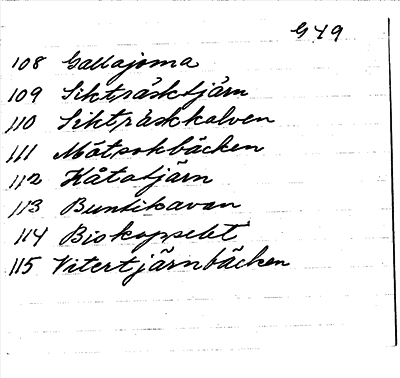 G 49
108 Gallajoma
109 Siktträsktjärn
110 Siktträskkalven
111 Måtsokbäcken
112 Kåtatjärn
113 Buntikavan
114 Biskopselet
115 Vitertjärnbäcken